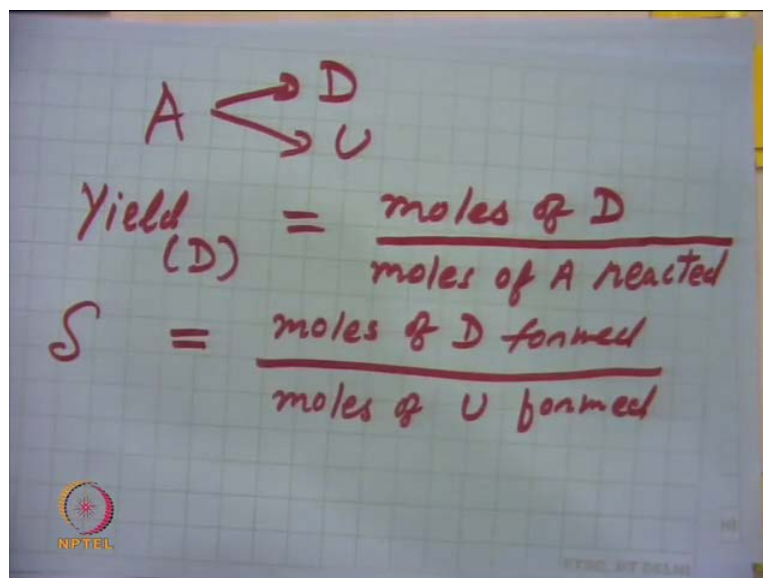 A D
U
Yield (D) = moles of D
moles of A reacted
S = moles of D formed
moles of U formed
NPTEL